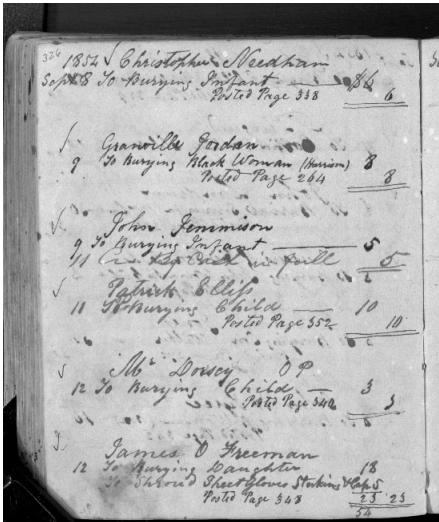 326
1854 Christopher Needham
Sept 8 To Burying Infant $6
Posted Page 338 6
Granville Jordan
9 To Burying Black Woman (Harrison) 8
Posted Page 264 8
John Jemmison
9 To Burying Infant 5
11 By Cash in full 5
Patrick Elliss
11 To Burying Child 10
Posted Page 352 10
Mr Dorsey O P
12 To Burying Child 3
Posted Page 340 3
James O Freeman
12 To Burying Daughter 18
To Shroud Sheet Gloves Stockins & Cap 5
Posted Page 348 23 23
54